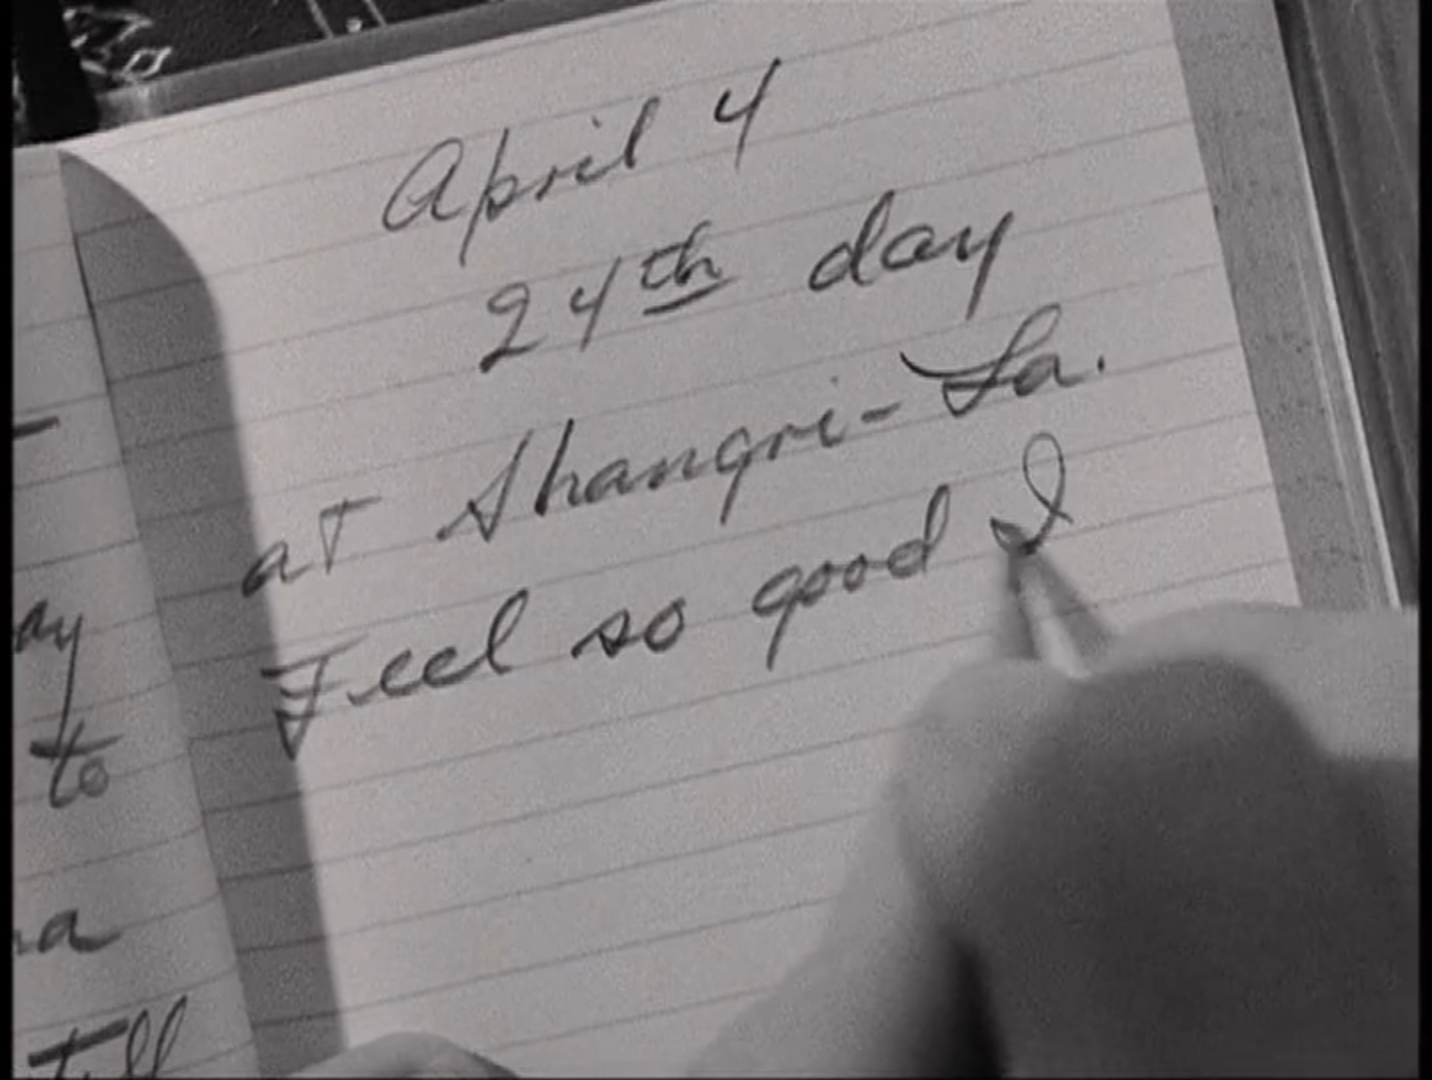 ay
to
a
till
April 4
24th day
at Shangri-La.
Feel so good I